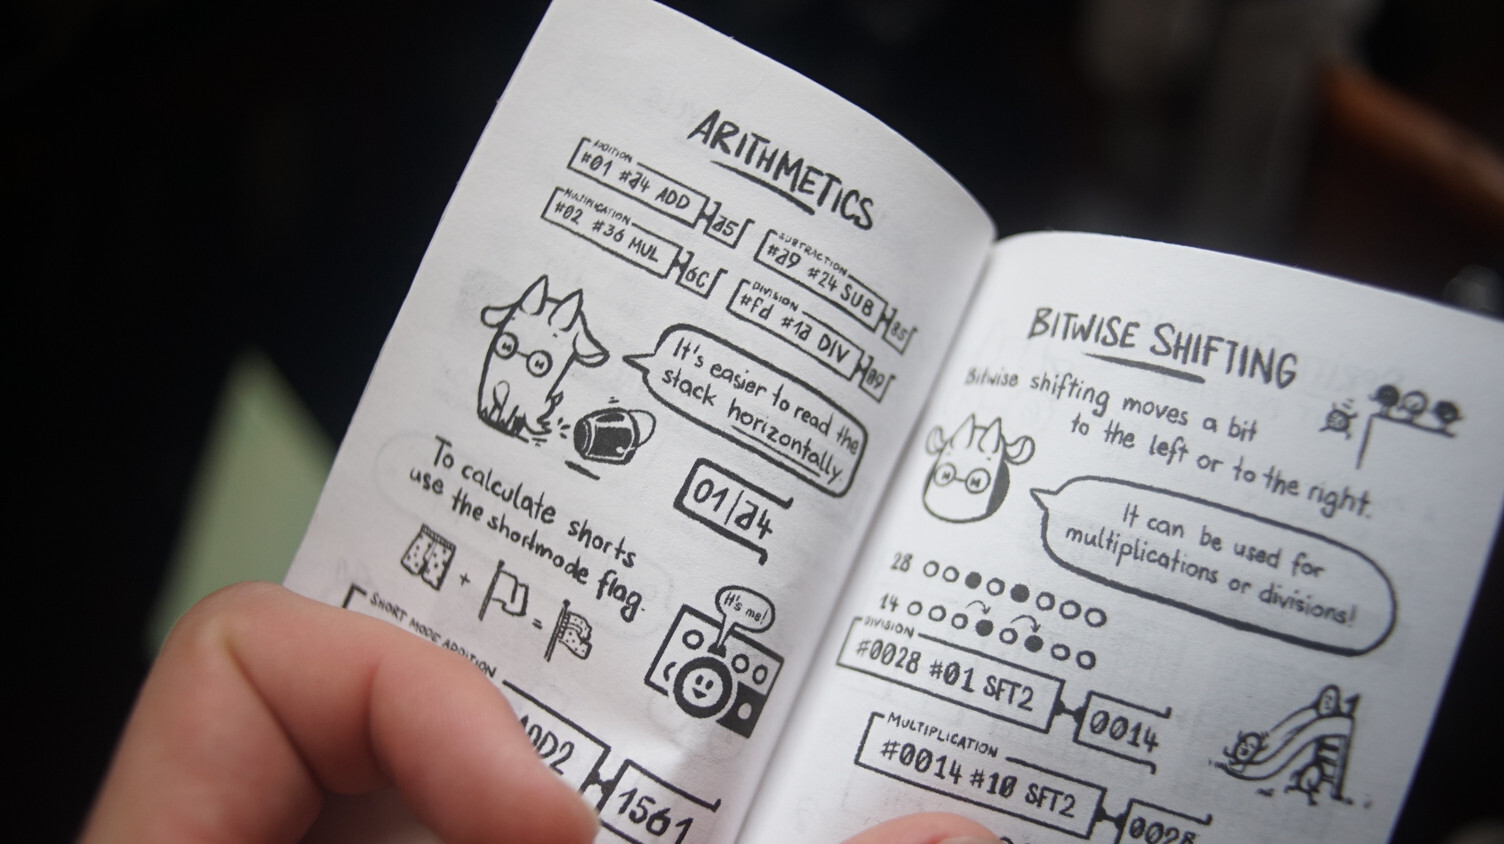 ARITHMETICS
ADDITION
#01 #a4 ADD a5
SUBTRACTION
#a9 #24 SUB 85
MULTIPLICATION
#02 #36 MUL 6C
DIVISION
#fd #1a DIV 09
It's easier to read the
stack horizontally.
01/a4
To calculate shorts
use the shortmode flag.
+ =
It's me!
SHORT MODE ADDITION
1561
BITWISE SHIFTING
Bitwise shifting moves a bit
to the left or to the right.
It can be used for
multiplications or divisions!
28
14
DIVISION
#0028 #01 SFT2 0014
MULTIPLICATION
#0014 #10 SFT2 0028